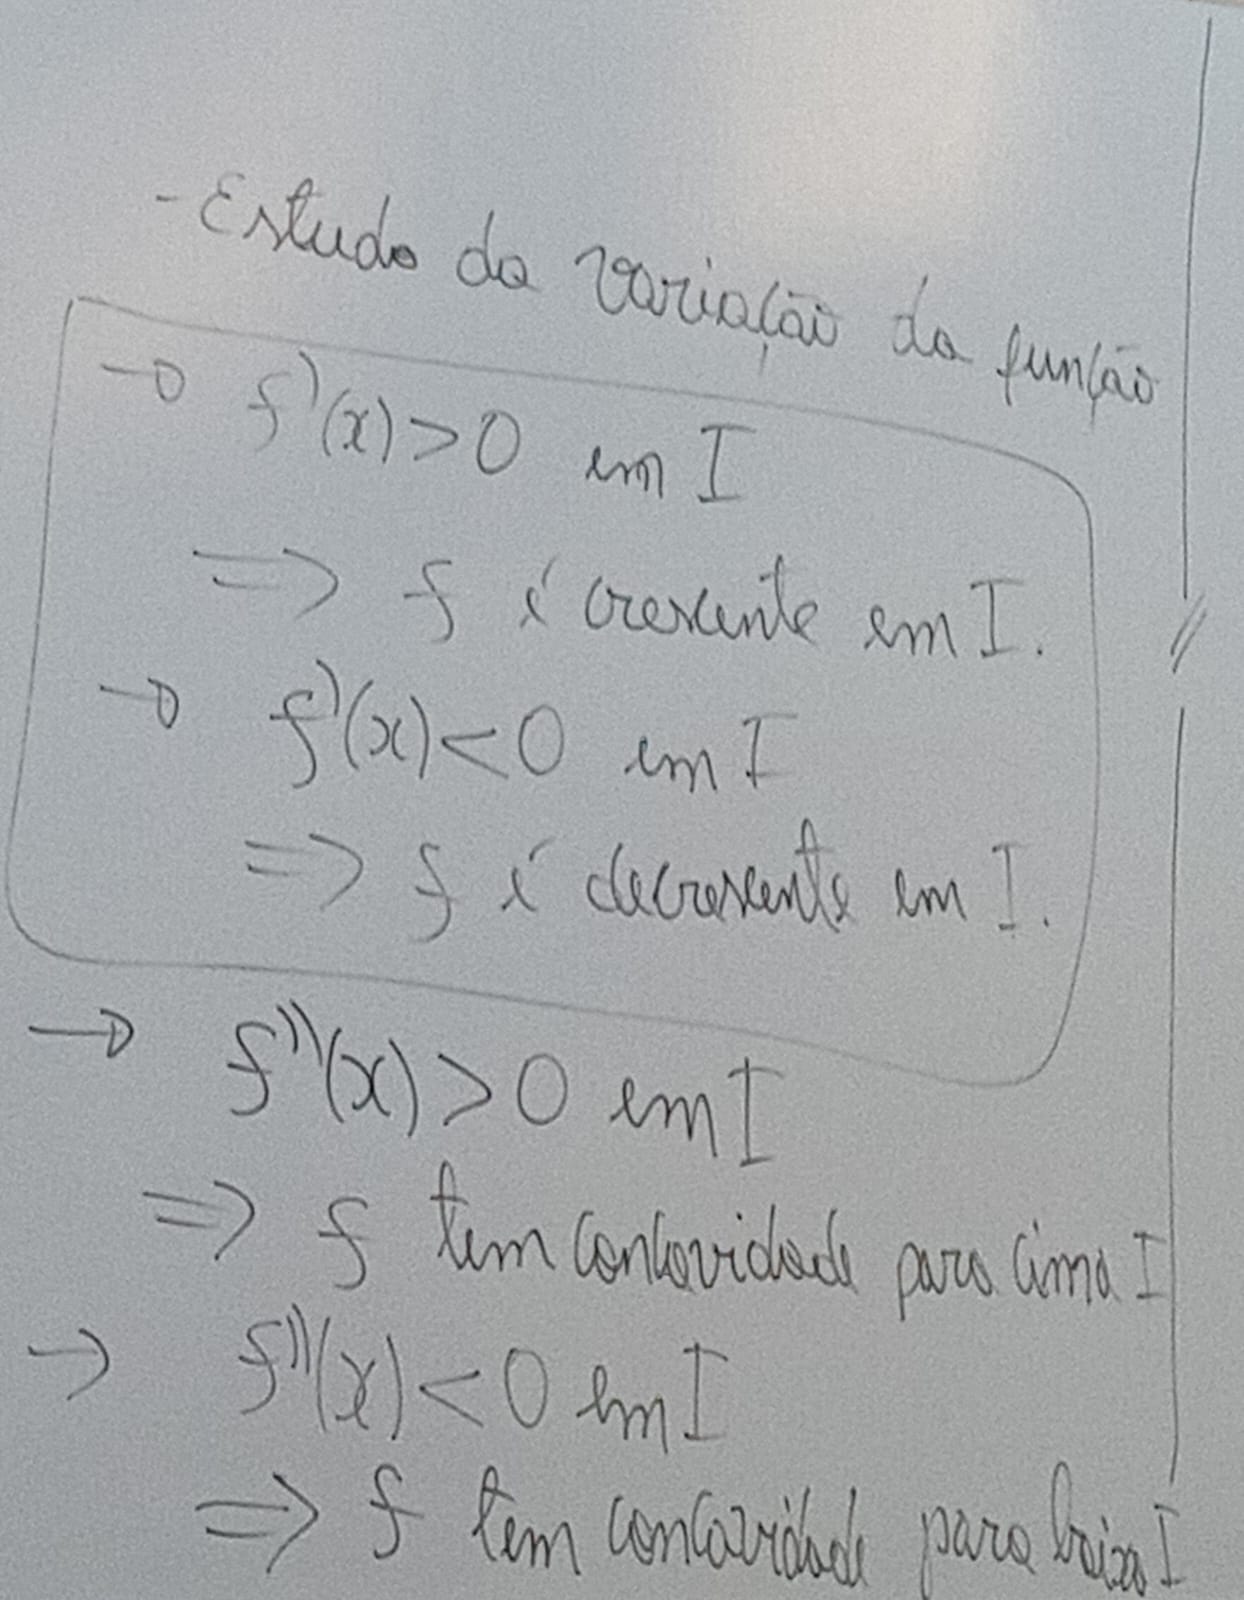 - Estudo da variação da função
→ f'(x) > 0 em I
⇒ f é crescente em I.
→ f'(x) < 0 em I
⇒ f é decrescente em I.
→ f''(x) > 0 em I
⇒ f tem concavidade para cima I
→ f''(x) < 0 em I
⇒ f tem concavidade para baixo I